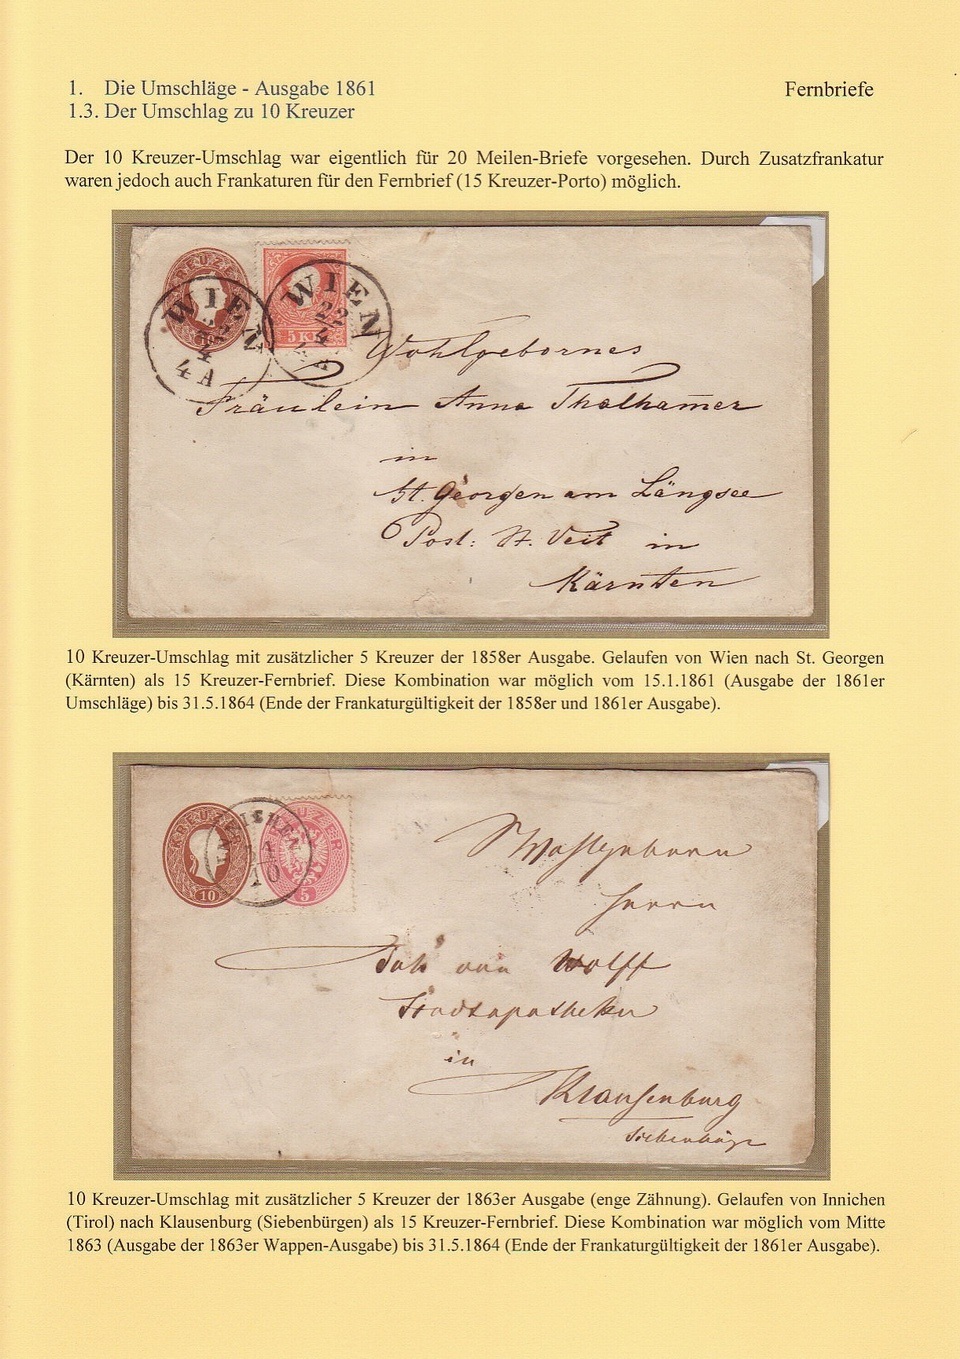 1. Die Umschläge - Ausgabe 1861
Fernbriefe
1.3. Der Umschlag zu 10 Kreuzer
Der 10 Kreuzer-Umschlag war eigentlich für 20 Meilen-Briefe vorgesehen. Durch Zusatzfrankatur
waren jedoch auch Frankaturen für den Fernbrief (15 Kreuzer-Porto) möglich.
KREUZER
WIEN
4
4 A
WIEN
22
4
5 K
Wohlgebornes
Fräulein Anna Thalham̅er
in
St. Georgen am Längsee
Post: St. Veit in
Kärnten
10 Kreuzer-Umschlag mit zusätzlicher 5 Kreuzer der 1858er Ausgabe. Gelaufen von Wien nach St. Georgen
(Kärnten) als 15 Kreuzer-Fernbrief. Diese Kombination war möglich vom 15.1.1861 (Ausgabe der 1861er
Umschläge) bis 31.5.1864 (Ende der Frankaturgültigkeit der 1858er und 1861er Ausgabe).
KREUZER
10
INNICHEN
10
KREUZER
5
Wohlgeborn
Herrn
Joh von Wolff
Stadtapotheker
in
Klausenburg
Siebenbürgen
10 Kreuzer-Umschlag mit zusätzlicher 5 Kreuzer der 1863er Ausgabe (enge Zähnung). Gelaufen von Innichen
(Tirol) nach Klausenburg (Siebenbürgen) als 15 Kreuzer-Fernbrief. Diese Kombination war möglich vom Mitte
1863 (Ausgabe der 1863er Wappen-Ausgabe) bis 31.5.1864 (Ende der Frankaturgültigkeit der 1861er Ausgabe).